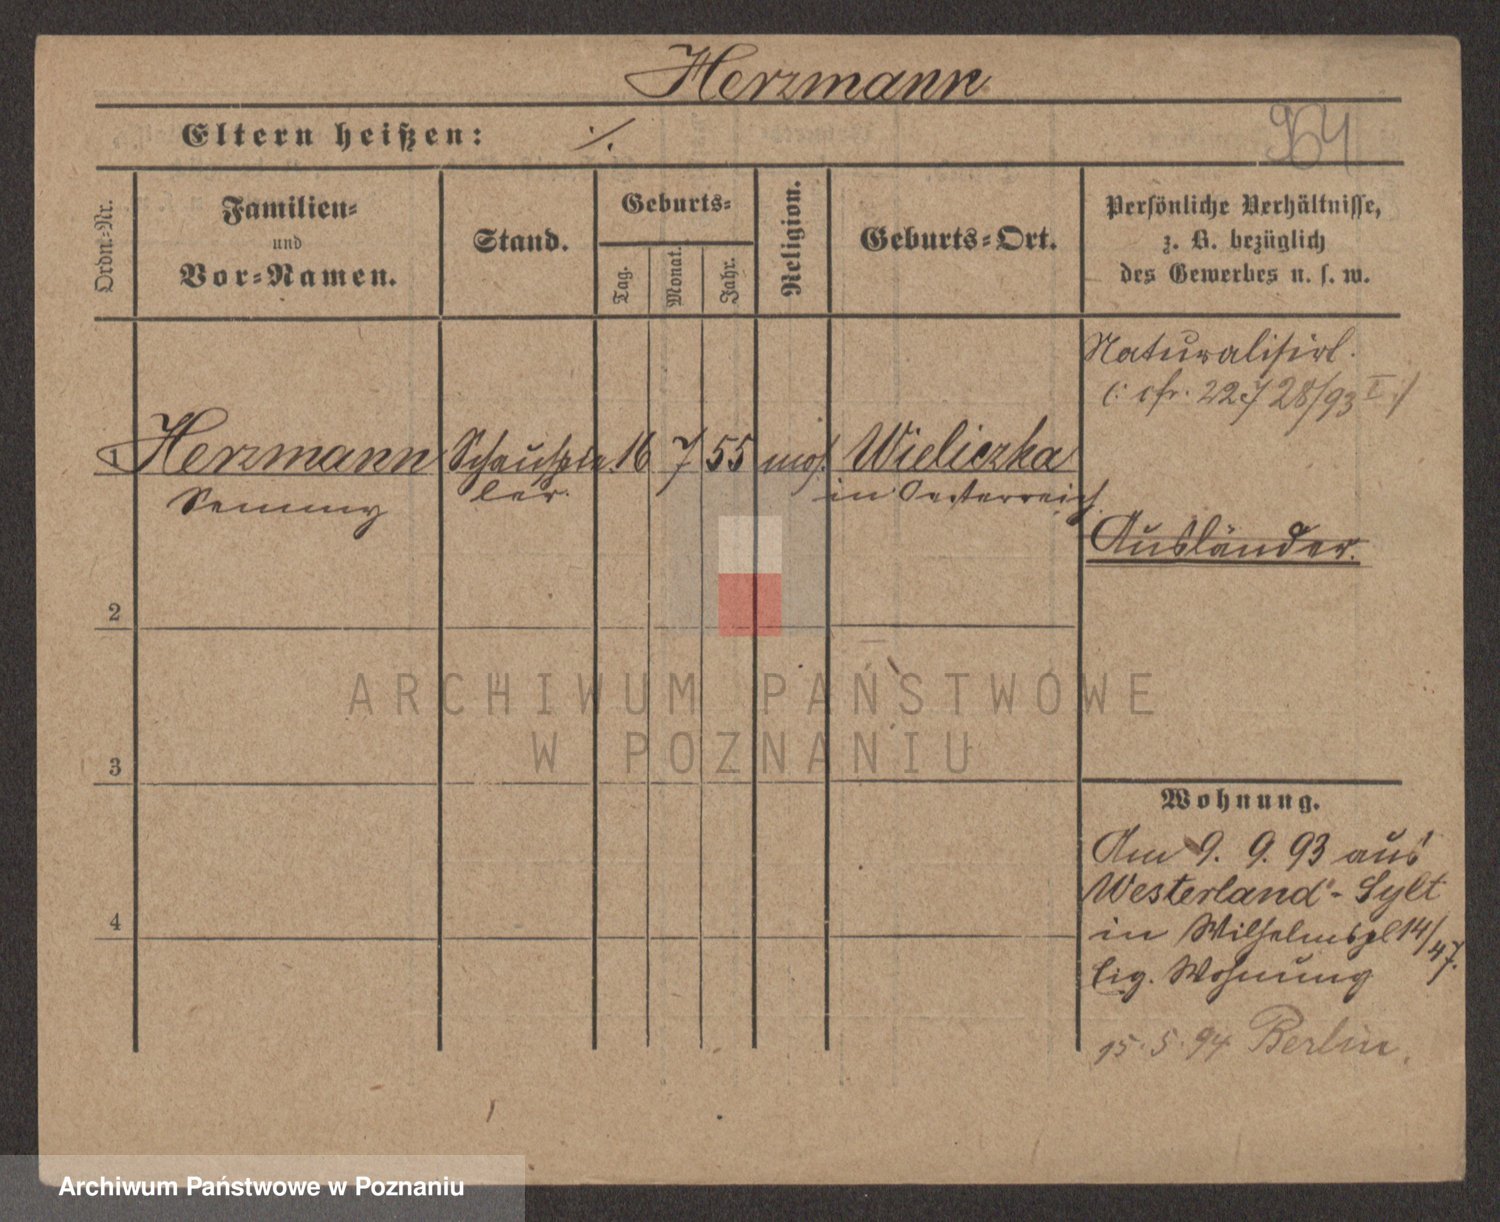 Herzmann
Eltern heißen: ./.
964
Ordn.=Nr.
Familien=
und
Vor=Namen.
Stand.
Geburts=
Tag.
Monat.
Jahr.
Religion.
Geburts=Ort.
Persönliche Verhältnisse,
z. B. bezüglich
des Gewerbes u. s. w.
Naturalisirt.
(: cfr. 22.7 28/93 I :)
1 Herzmann Schauspie 16 7 55 mos. Wieliczka
Semmy ler. in Oesterreich
Ausländer.
2
3
4
ARCHIWUM PAŃSTWOWE
W POZNANIU
Wohnung.
Am 9. 9. 93 aus
Westerland-Sylt
in Wilhelmspl 14/47.
Eig. Wohnung
15. 5. 94 Berlin.
Archiwum Państwowe w Poznaniu